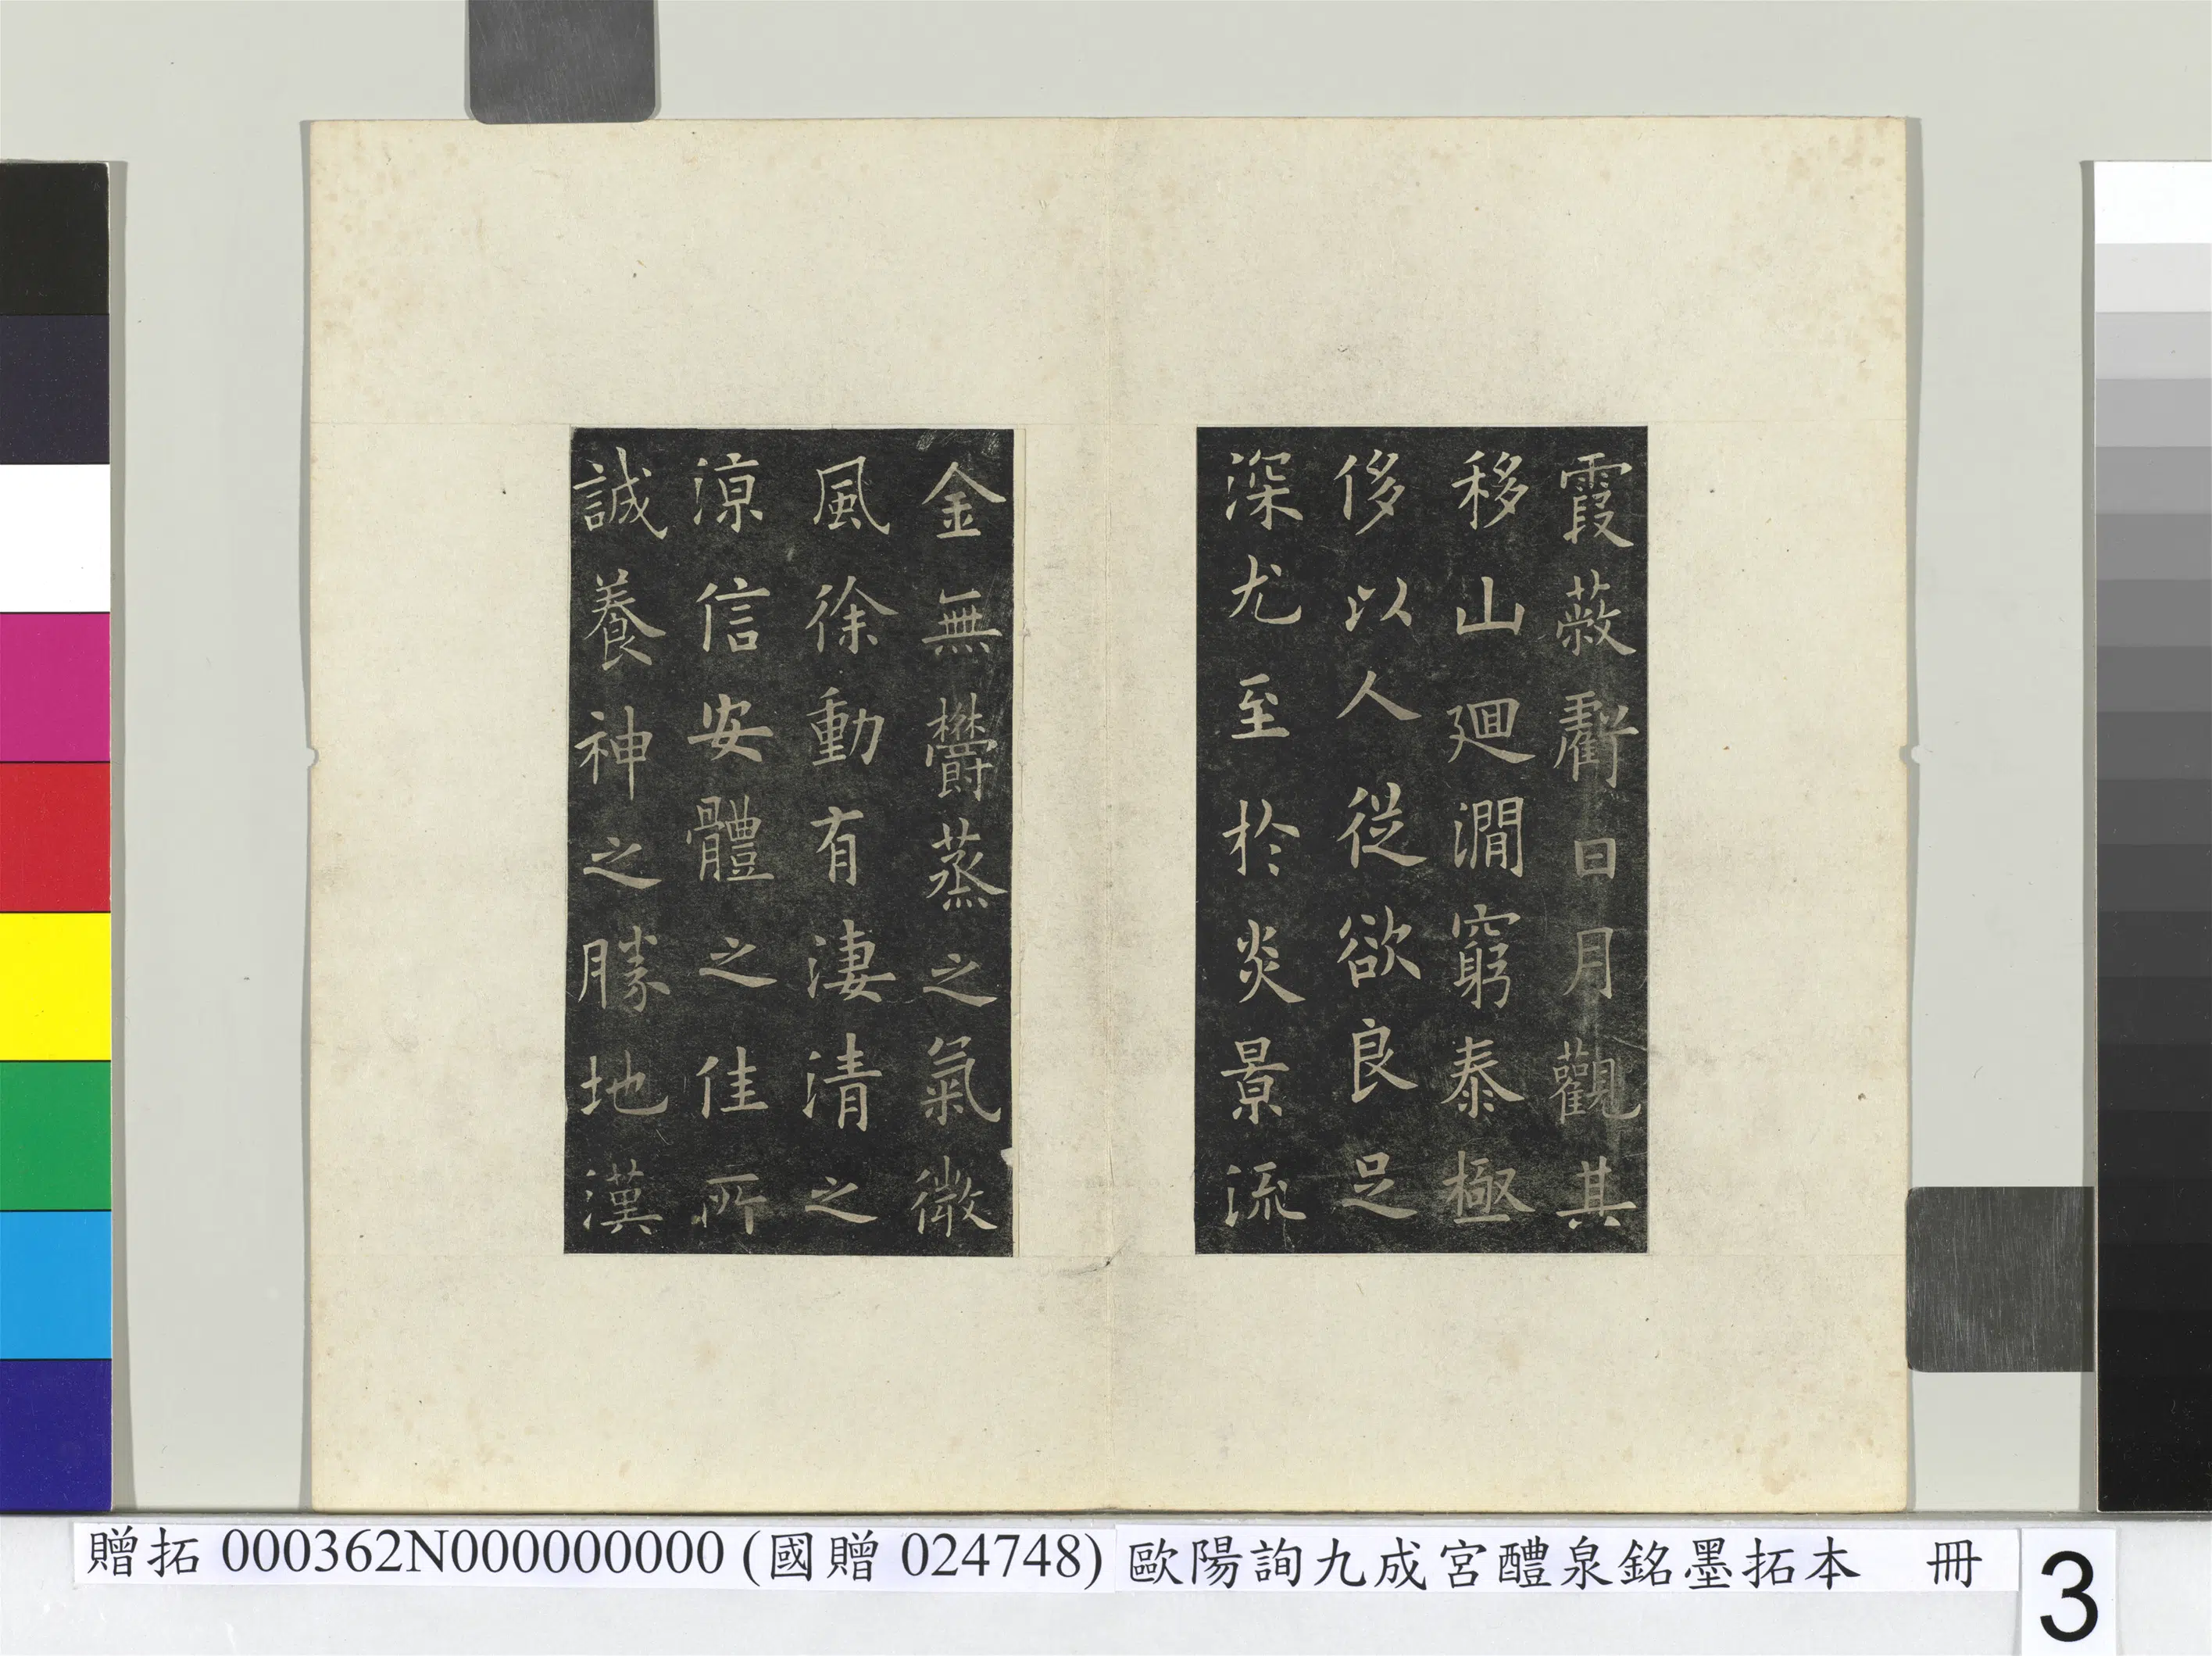 霞蔽虧日月觀其
移山迴澗窮泰極
侈以人從欲良足
深尤至於炎景流
金無鬱蒸之氣微
風徐動有淒清之
涼信安體之佳所
誠養神之勝地漢
贈拓 000362N000000000 (國贈 024748) 歐陽詢九成宮醴泉銘墨拓本 冊
3